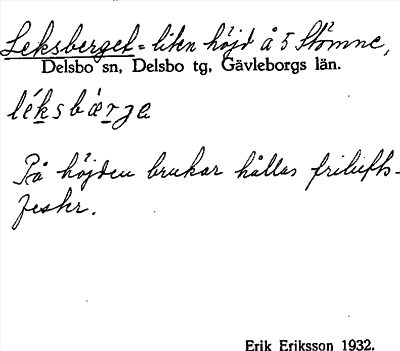 Leksberget = liten höjd å 5 Stömne,
Delsbo sn, Delsbo tg, Gävleborgs län.
léksbærje
På höjden brukar hållas frilufts-
fester.
Erik Eriksson 1932.